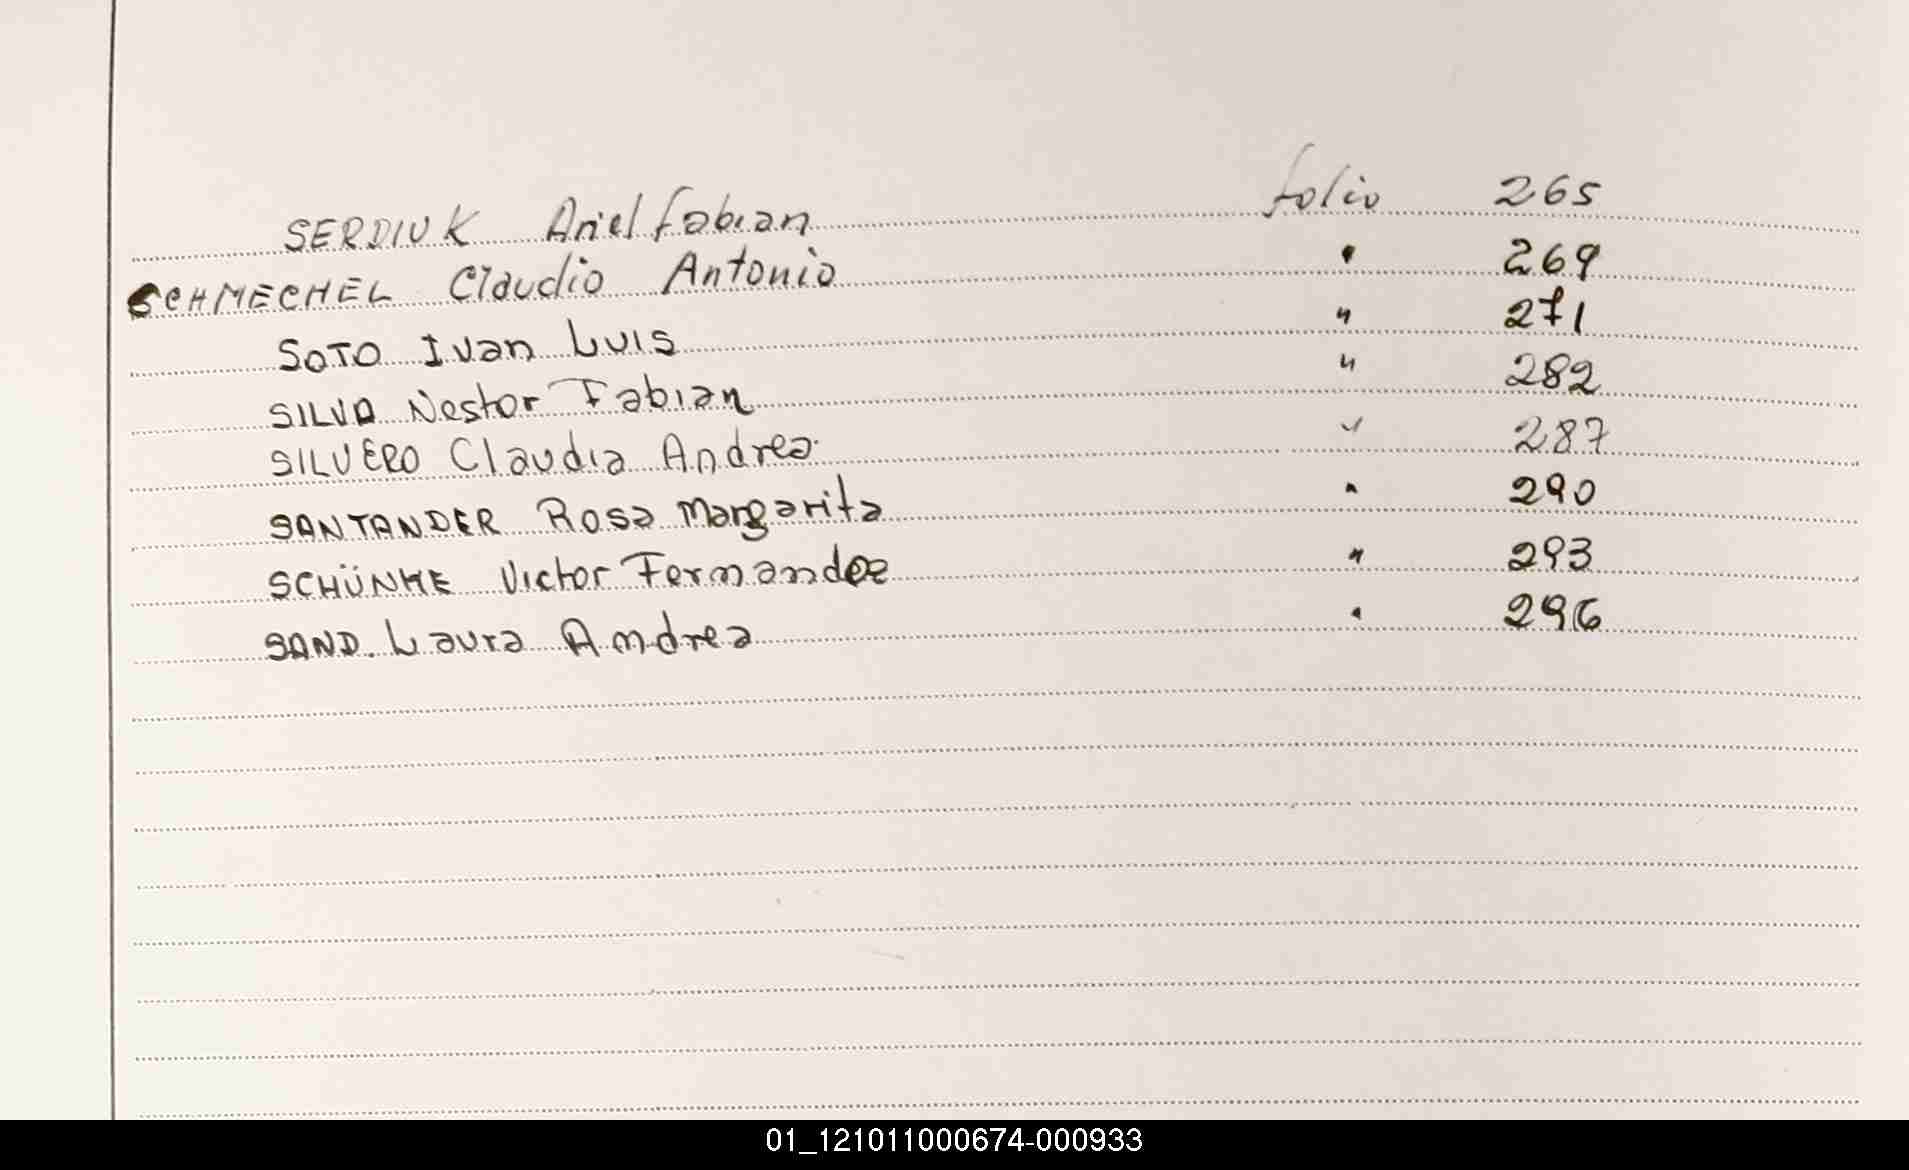 SERDIUK Ariel Fabian folio 265
SCHMECHEL Claudio Antonio " 269
SOTO Ivan Luis " 271
SILVA Nestor Fabian " 282
SILVERO Claudia Andrea " 287
SANTANDER Rosa Margarita " 290
SCHÜNKE Victor " 293
SAND. Laura Andrea " 296
01_121011000674-000933